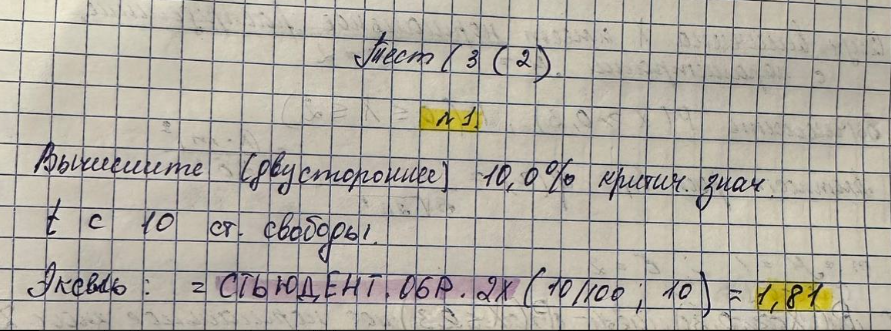 Тест (3 (2)
№1.
Вычислите (двустороннее) 10,0% критич. знач.
t с 10 ст. свободы.
Эксель: = СТЬЮДЕНТ.ОБР.2Х (10/100; 10) = 1,81